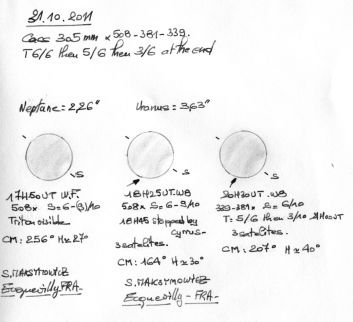 21.10.2011
Cass 305 mm x 508 - 381 - 339.
T 6/6 then 5/6 then 3/6 at the end
Neptune = 2,26"
Uranus = 3,63"
S
S
S
17H50UT W.F.
508x S=6-(5)/10
Triton visible
CM: 256° H≈27°
S.MAKSYMOWICZ
Ecquevilly FRA.
18H25UT.WB
508x S=6-5/10
18H45 stopped by
cirrus-
3 satellites.
CM: 164° H≈30°
S.MAKSYMOWICZ
Ecquevilly - FRA -
20H30UT.WB
S=6/10
T: 5/6 then 3/10
3 satellites.
CM: 207° H≈40°